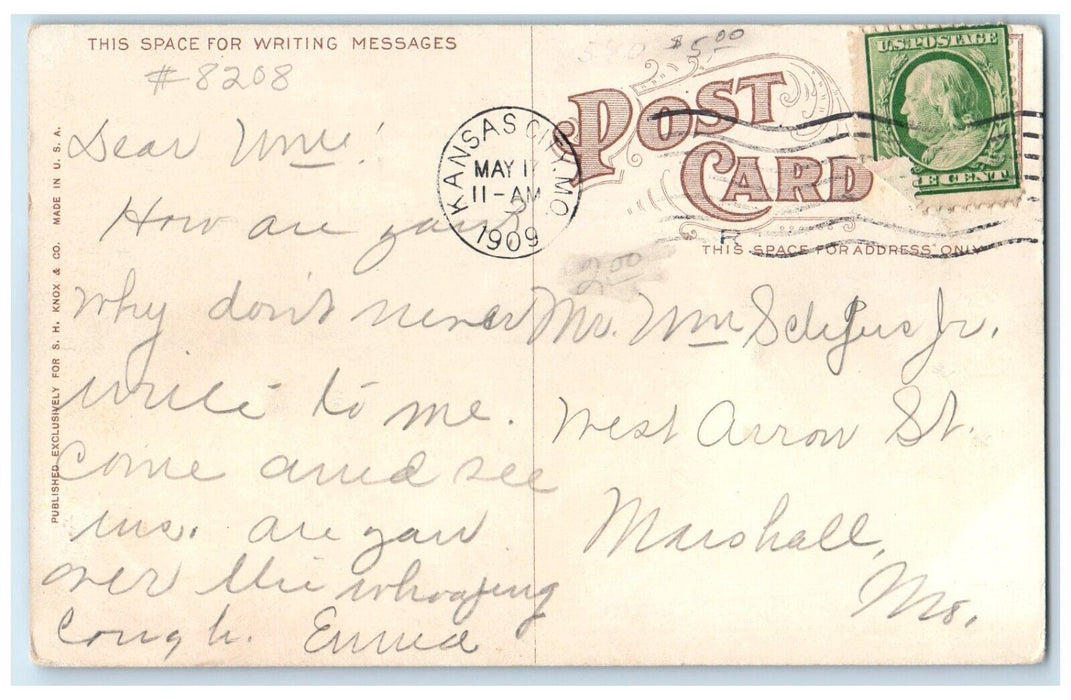 THIS SPACE FOR WRITING MESSAGES
#8208
Dear Wm!
How are you
why don't never
write to me.
Come and see
us. are you
over the whooping
Cough.
PUBLISHED EXCLUSIVELY FOR S. H. KNOX & CO. MADE IN U. S. A.
$5.00
POST
CARD
U.S. POSTAGE
E CENT
KANSAS CITY, MO.
MAY 17
11-AM
1909
R
THIS SPACE FOR ADDRESS ONLY
2.00
Mr. Wm Jr.
West Arrow St.
Marshall,
Mo.